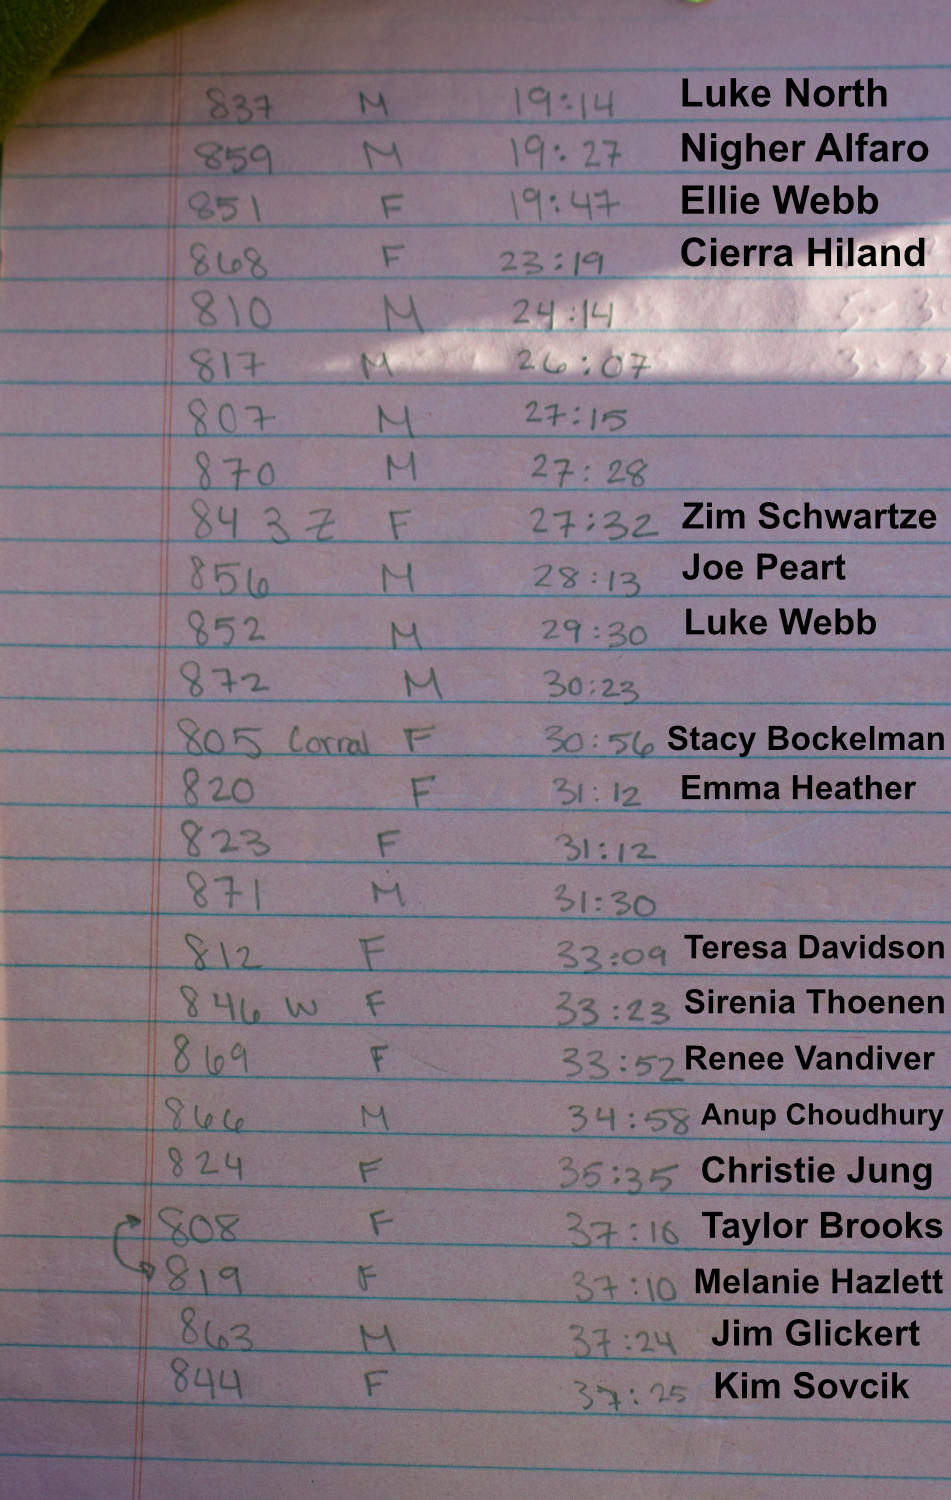 837 M 19:14 Luke North
859 M 19:27 Nigher Alfaro
851 F 19:47 Ellie Webb
868 F 23:19 Cierra Hiland
810 M 24:14
817 M 26:07
807 M 27:15
870 M 27:28
843 Z F 27:32 Zim Schwartze
856 M 28:13 Joe Peart
852 M 29:30 Luke Webb
872 M 30:23
805 Corral F 30:56 Stacy Bockelman
820 F 31:12 Emma Heather
823 F 31:12
871 M 31:30
812 F 33:09 Teresa Davidson
846 W F 33:23 Sirenia Thoenen
869 F 33:52 Renee Vandiver
866 M 34:58 Anup Choudhury
824 F 35:35 Christie Jung
808 F 37:16 Taylor Brooks
819 F 37:10 Melanie Hazlett
863 M 37:24 Jim Glickert
844 F 37:25 Kim Sovcik